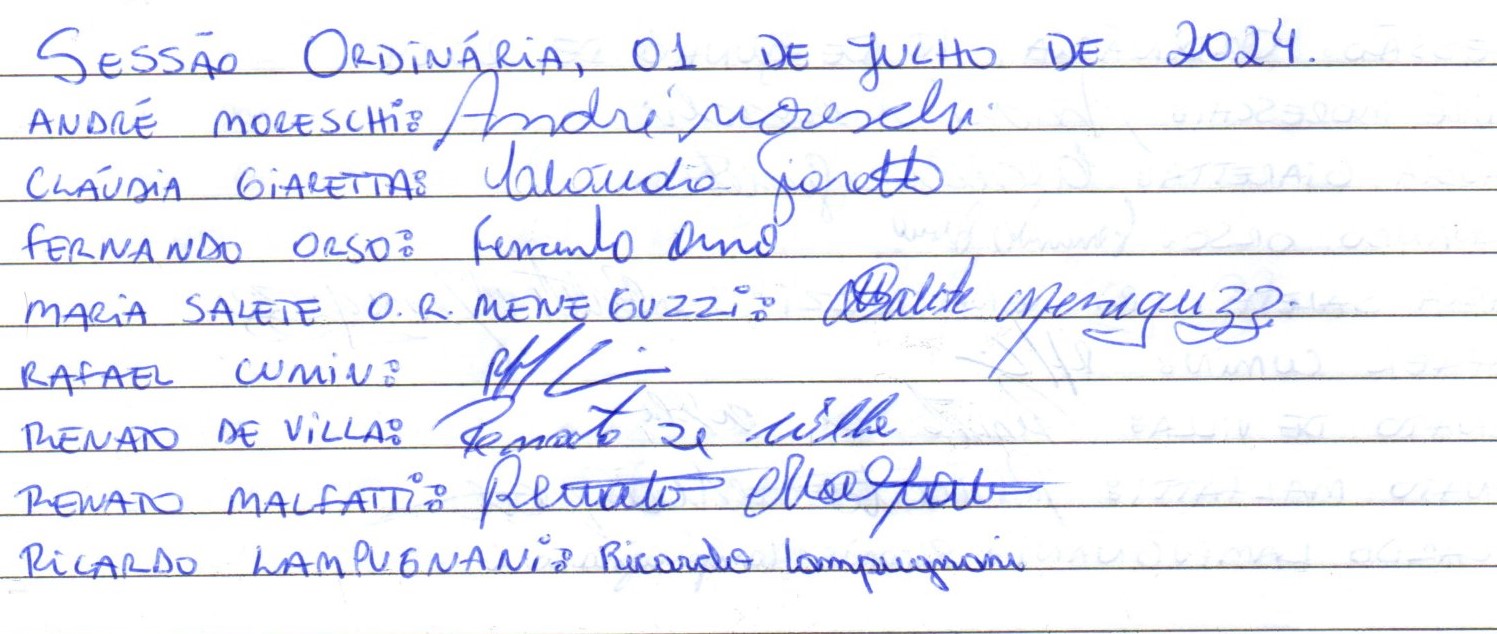 SESSÃO ORDINÁRIA, 01 DE JULHO DE 2024.
ANDRÉ MORESCHI: André Moreschi
CLÁUDIA GIARETTA: Claudia Giaretta
FERNANDO ORSO: Fernando Orso
MARIA SALETE O. R. MENEGUZZI: MSalete Meneguzzi
RAFAEL CUMIN:
RENATO DE VILLA: Renato de Villa
RENATO MALFATTI: Renato Malfatti
RICARDO LAMPUGNANI: Ricardo Lampugnani